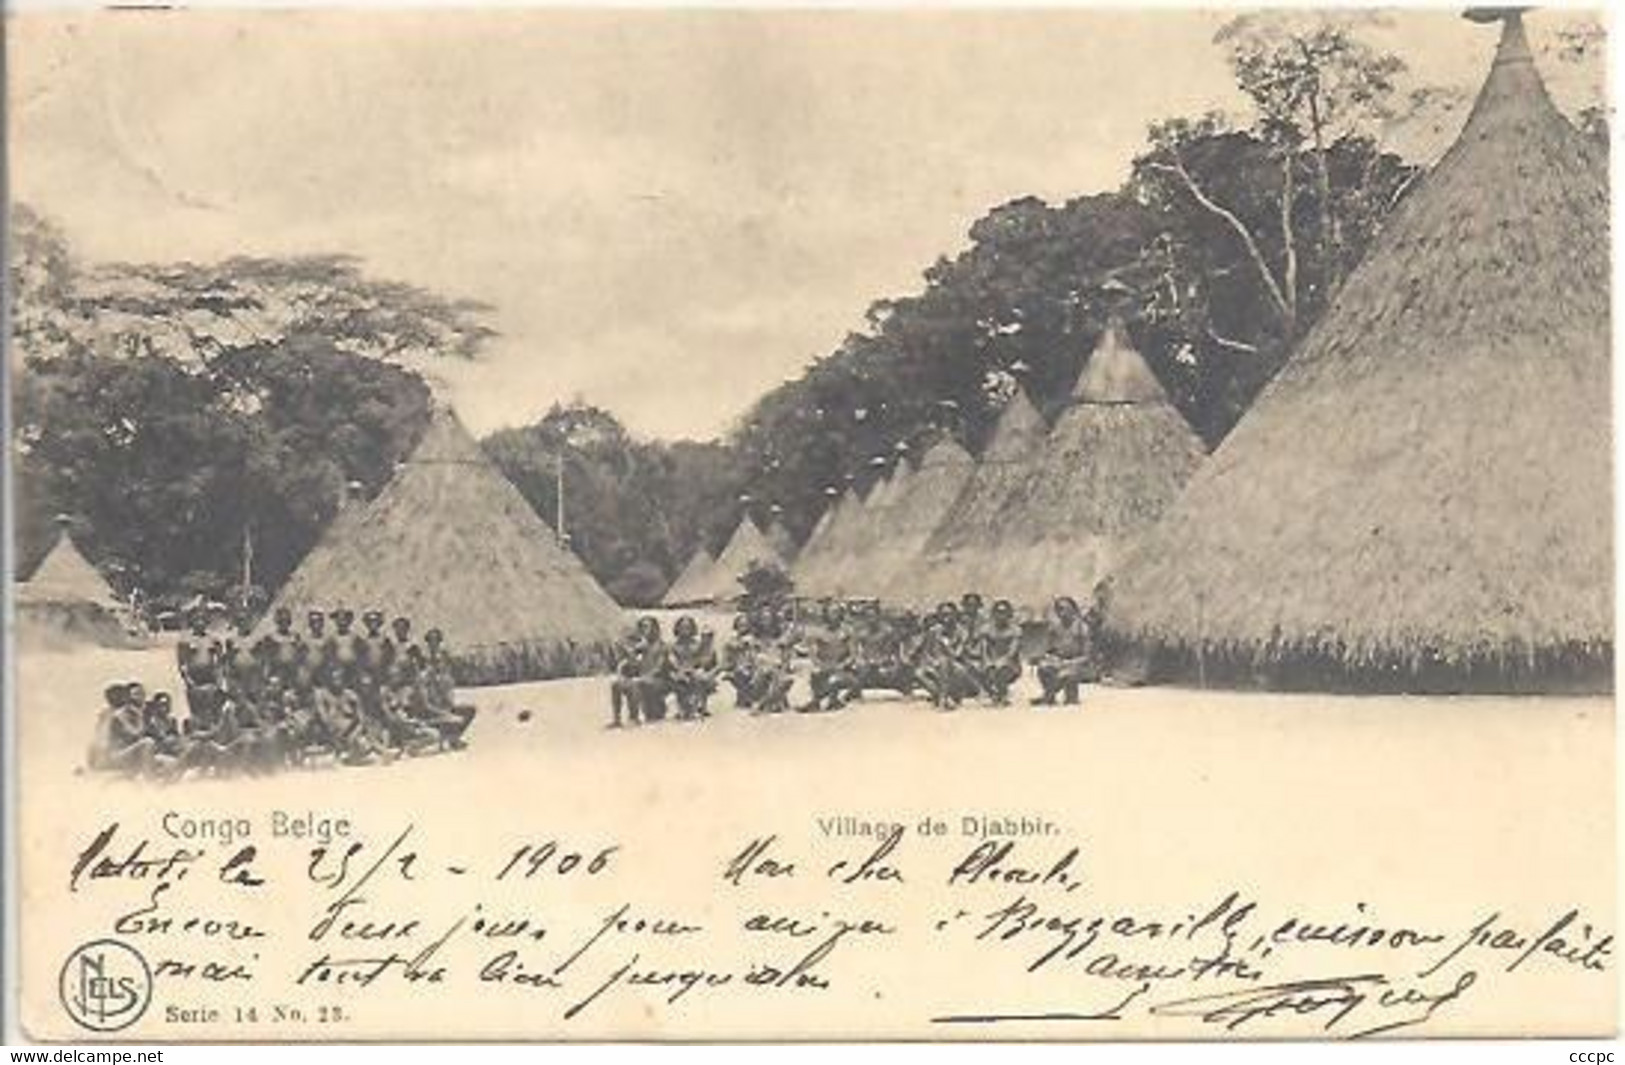 Congo Belge
Village de Djabbir.
Matadi le 25/2 - 1906 Mon cher
Encore deux jours pour arriver à Brazzaville, parfaite
mais tout va bien jusqu'alors
NELS
Serie 14 No. 23.
delcampe.net
cccpc